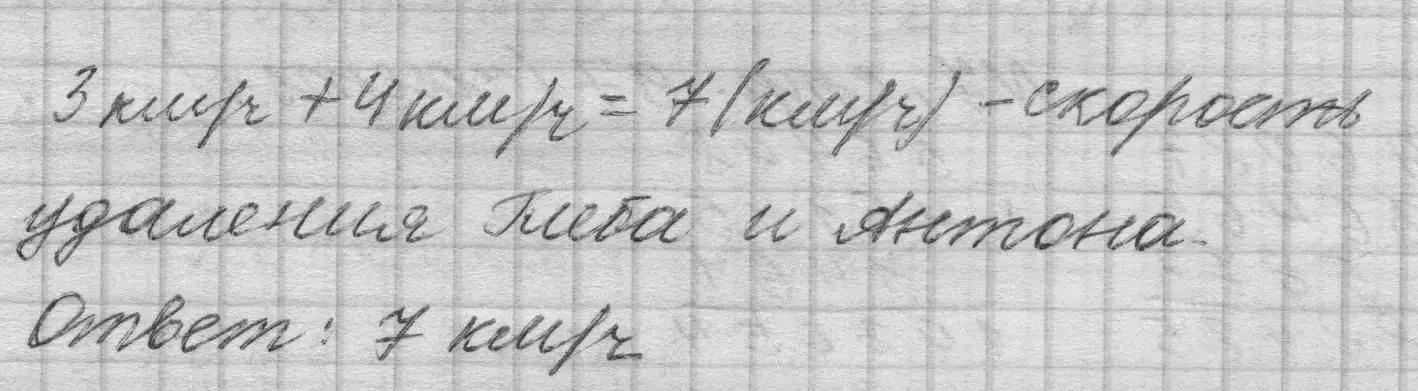 3 км/ч + 4 км/ч = 7 (км/ч) - скорость
удаления Глеба и Антона.
Ответ: 7 км/ч